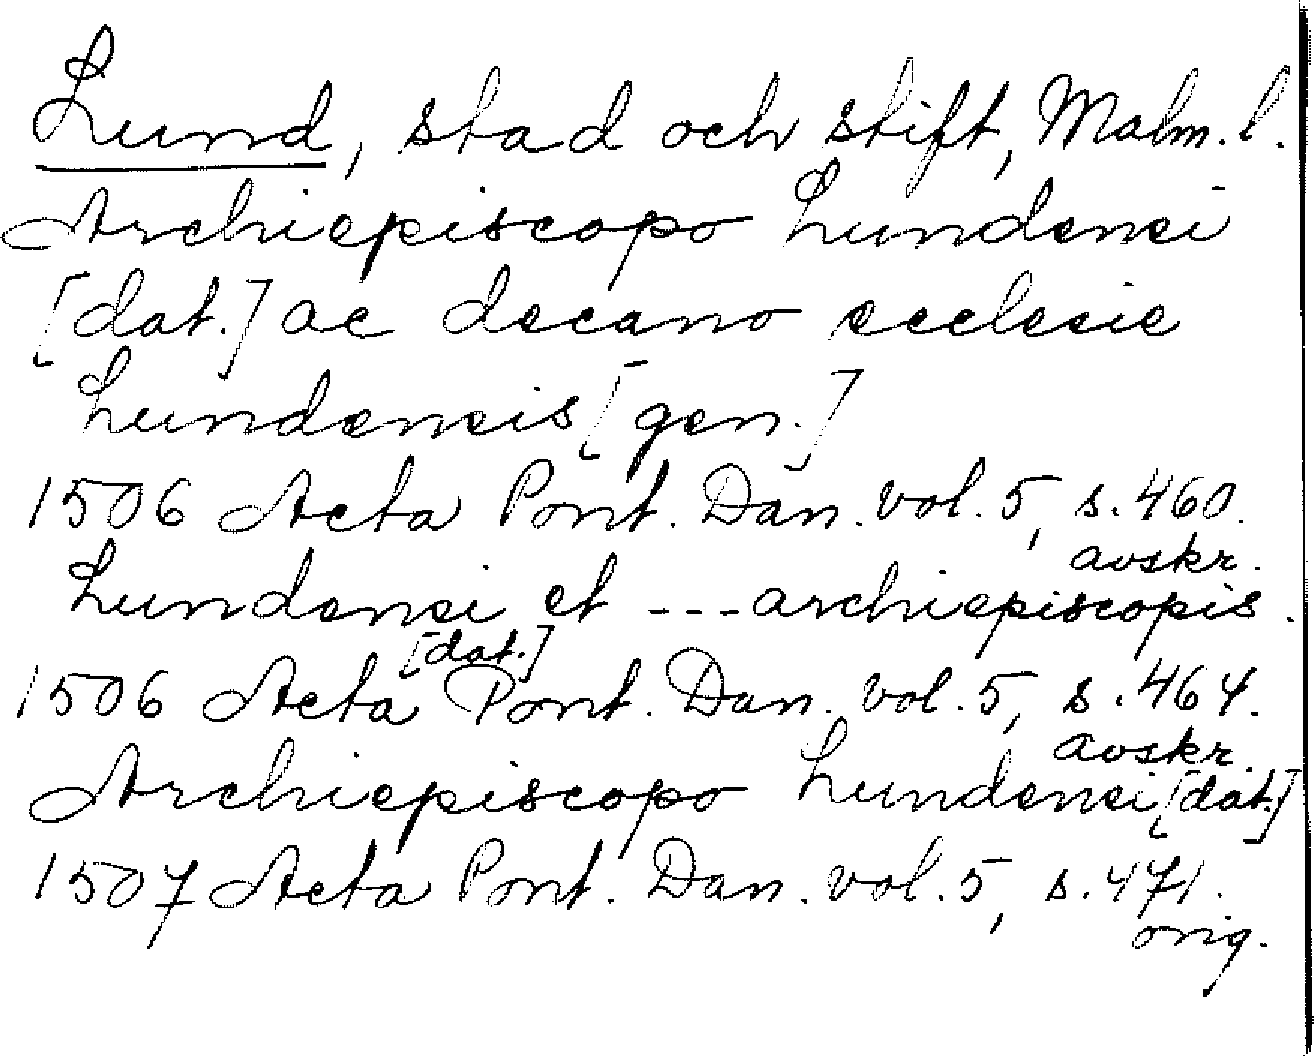 Lund, stad och stift, Malm. l.
Archiepiscopo Lundensi
[dat.] ac decano ecclesie
Lundensis [gen.]
1506 Acta Pont. Dan. vol. 5, s. 460.
avskr.
Lundensi et --- archiepiscopis.
[dat.]
1506 Acta Pont. Dan. vol. 5, s. 464.
avskr.
Archiepiscopo Lundensi [dat.]
1507 Acta Pont. Dan. vol. 5, s. 471.
orig.